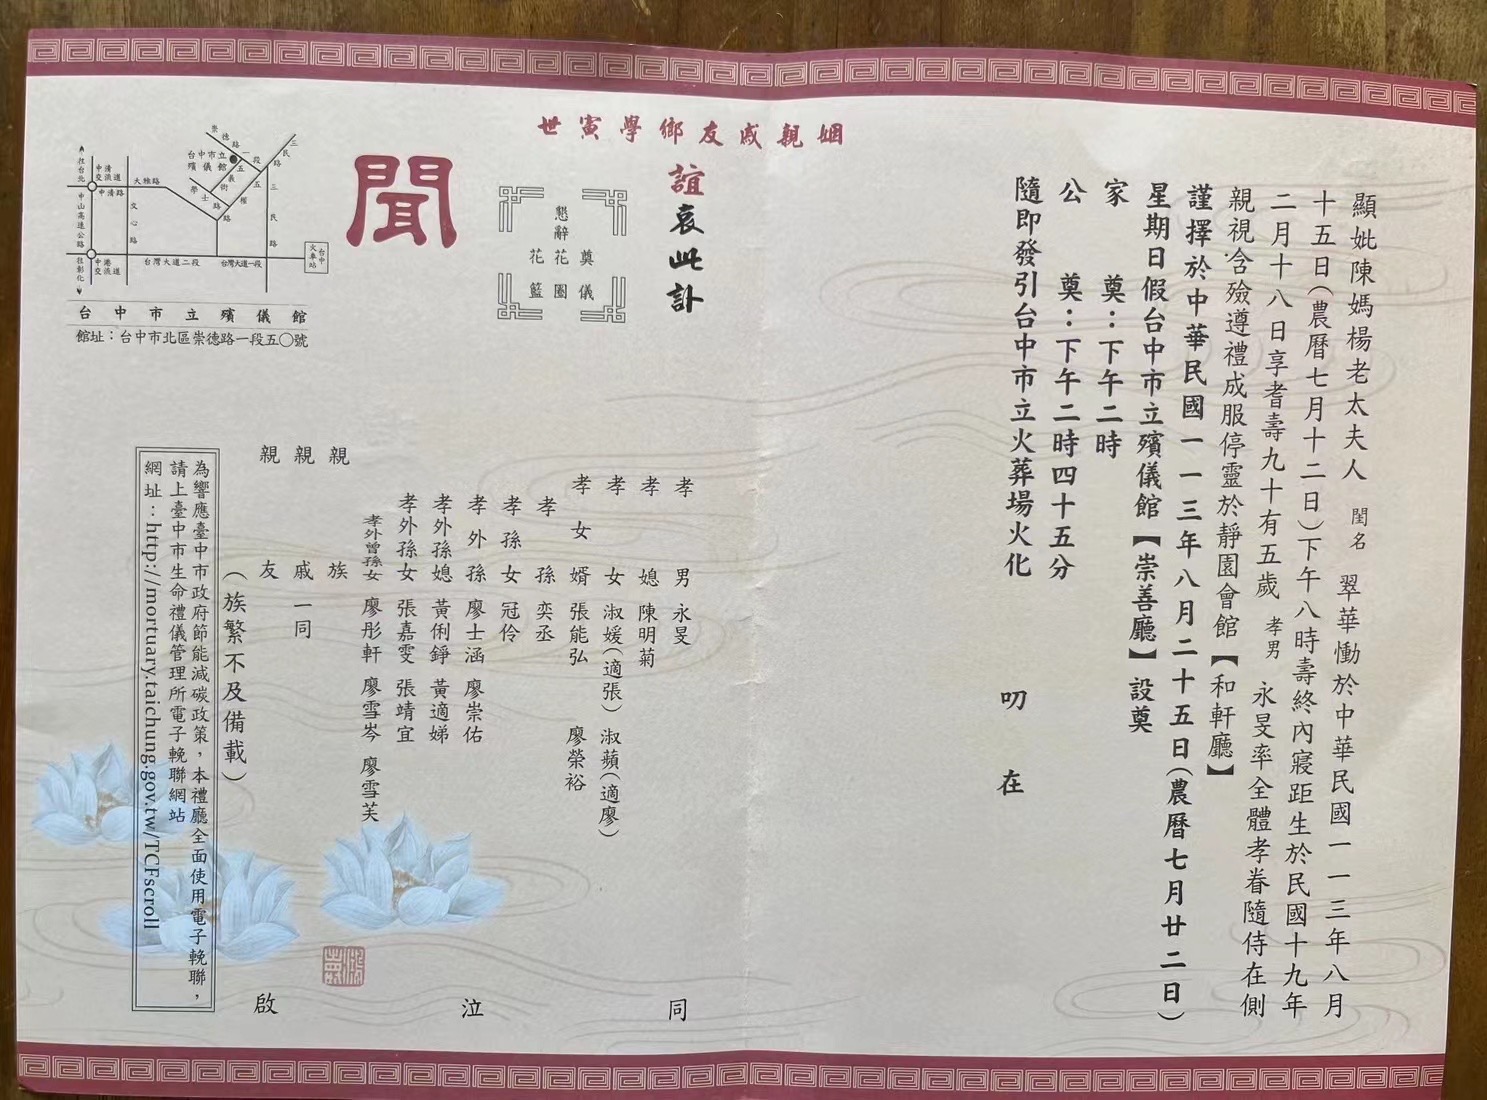 顯妣陳媽楊老太夫人 閨名 翠華慟於中華民國一一三年八月
十五日(農曆七月十二日)下午八時壽終內寢距生於民國十九年
二月十八日享耆壽九十有五歲 孝男 永旻率全體孝眷隨侍在側
親視含殮遵禮成服停靈於靜園會館【和軒廳】
謹擇於中華民國一一三年八月二十五日(農曆七月廿二日)
星期日假台中市立殯儀館【崇善廳】設奠
家 奠:下午二時
公 奠:下午二時四十五分
隨即發引台中市立火葬場火化
叨 在
姻親戚友鄉學寅世
誼哀此訃
懇辭 奠儀
花圈
花籃
聞
孝 男 永旻
孝 媳 陳明菊
孝 女 淑媛(適張) 淑蘋(適廖)
孝女婿 張能弘 廖榮裕
孝 孫 奕丞
孝孫女 冠伶
孝外孫 廖士涵 廖崇佑
孝外孫媳 黃俐錚 黃適娣
孝外孫女 張嘉雯 張靖宜
孝外曾孫女 廖彤軒 廖雪岑 廖雪芙
親 族
親 戚 一同
親 友
(族繁不及備載)
同
泣
啟
為響應臺中市政府節能減碳政策,本禮廳全面使用電子輓聯,
請上臺中市生命禮儀管理所電子輓聯網站
網址:http://mortuary.taichung.gov.tw/TCFscroll
往台北
中清交流道
中清路
大雅路
文心路
中山高速公路
往彰化
中港交流道
台灣大道二段
台灣大道一段
崇德路一段
台中市立殯儀館
五義街
學士路
五權路
三民路
三民路
台中火車站
台中市立殯儀館
館址:台中市北區崇德路一段五〇號